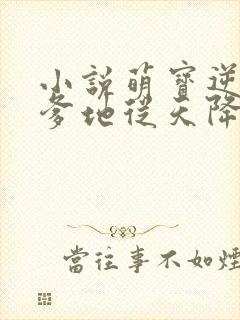 小說萌寶逆
爹地從天降
當往事不如煙